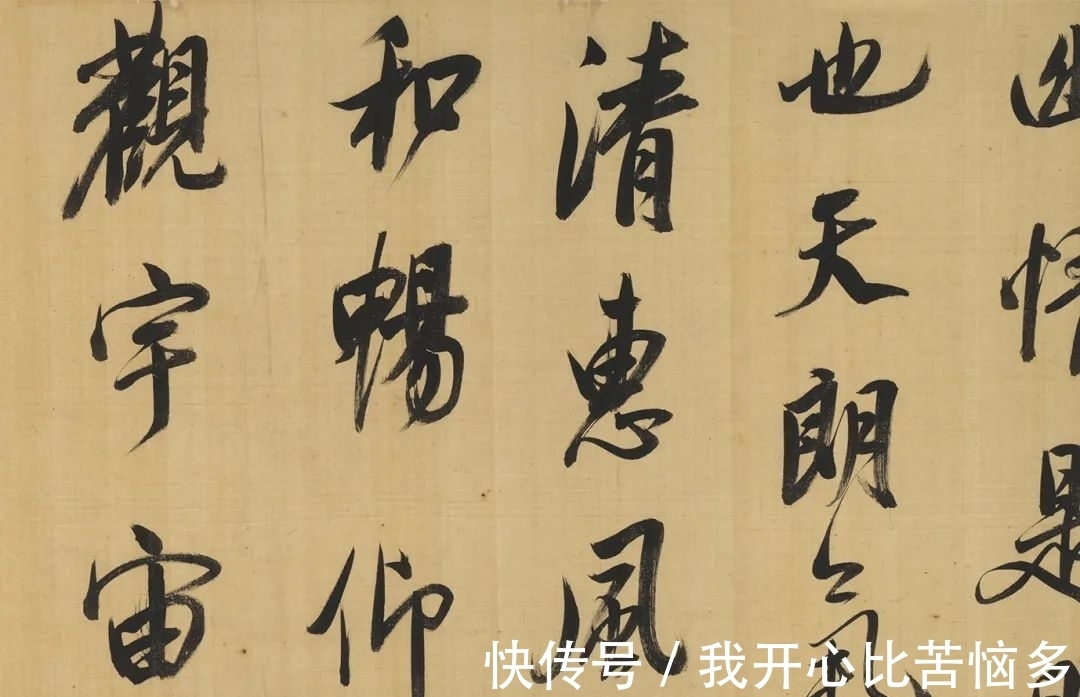 幽情是
也天朗氣
清惠風
和暢仰
觀宇宙
快传号 / 我开心比苦恼多